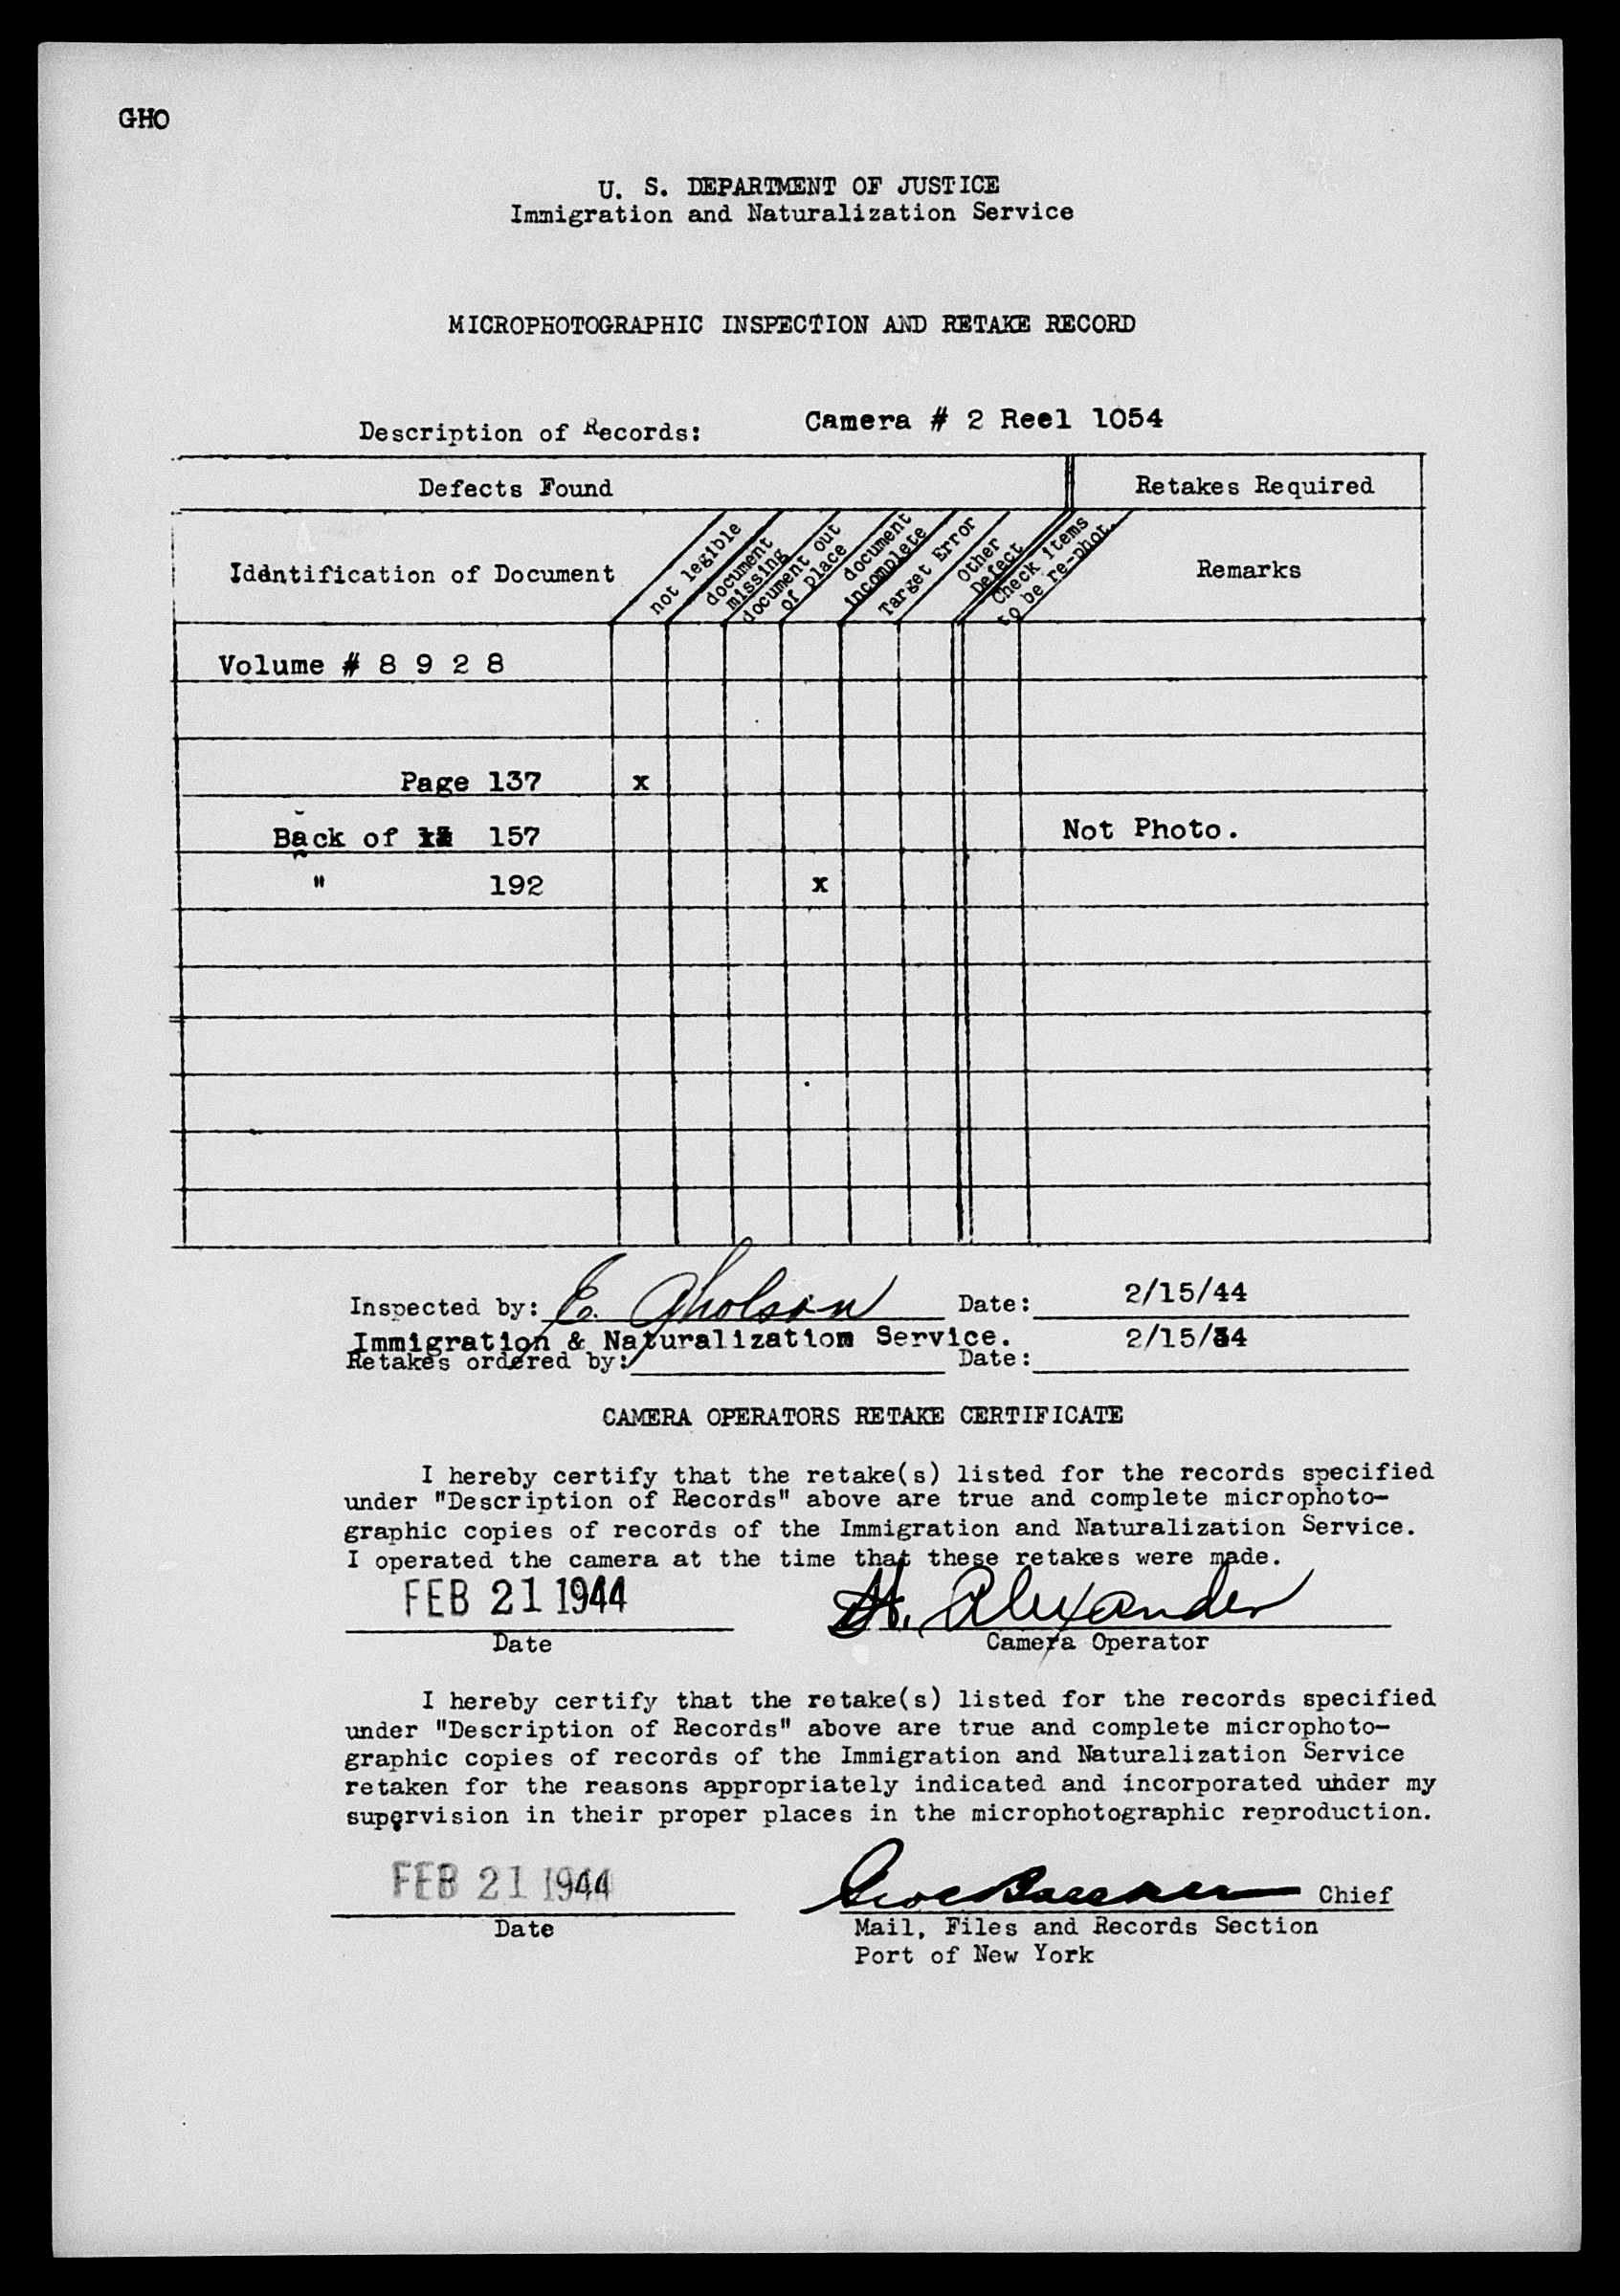 GHO
U. S. DEPARTMENT OF JUSTICE
Immigration and Naturalization Service
MICROPHOTOGRAPHIC INSPECTION AND RETAKE RECORD
Description of Records: Camera # 2 Reel 1054
Defects Found Retakes Required
Identification of Document
not legible
document missing
document out of place
document incomplete
Target Error
Other Defect
Check items to be re-phot.
Remarks
Volume # 8 9 2 8
Page 137 x
Back of 157 Not Photo.
" 192 x
Inspected by: E. Gholson Date: 2/15/44
Immigration & Naturalization Service. 2/15/44
Retakes ordered by: Date:
CAMERA OPERATORS RETAKE CERTIFICATE
I hereby certify that the retake(s) listed for the records specified
under "Description of Records" above are true and complete microphoto-
graphic copies of records of the Immigration and Naturalization Service.
I operated the camera at the time that these retakes were made.
FEB 21 1944 H. Alexander
Date Camera Operator
I hereby certify that the retake(s) listed for the records specified
under "Description of Records" above are true and complete microphoto-
graphic copies of records of the Immigration and Naturalization Service
retaken for the reasons appropriately indicated and incorporated under my
supervision in their proper places in the microphotographic reproduction.
FEB 21 1944 Chief
Date Mail, Files and Records Section
Port of New York